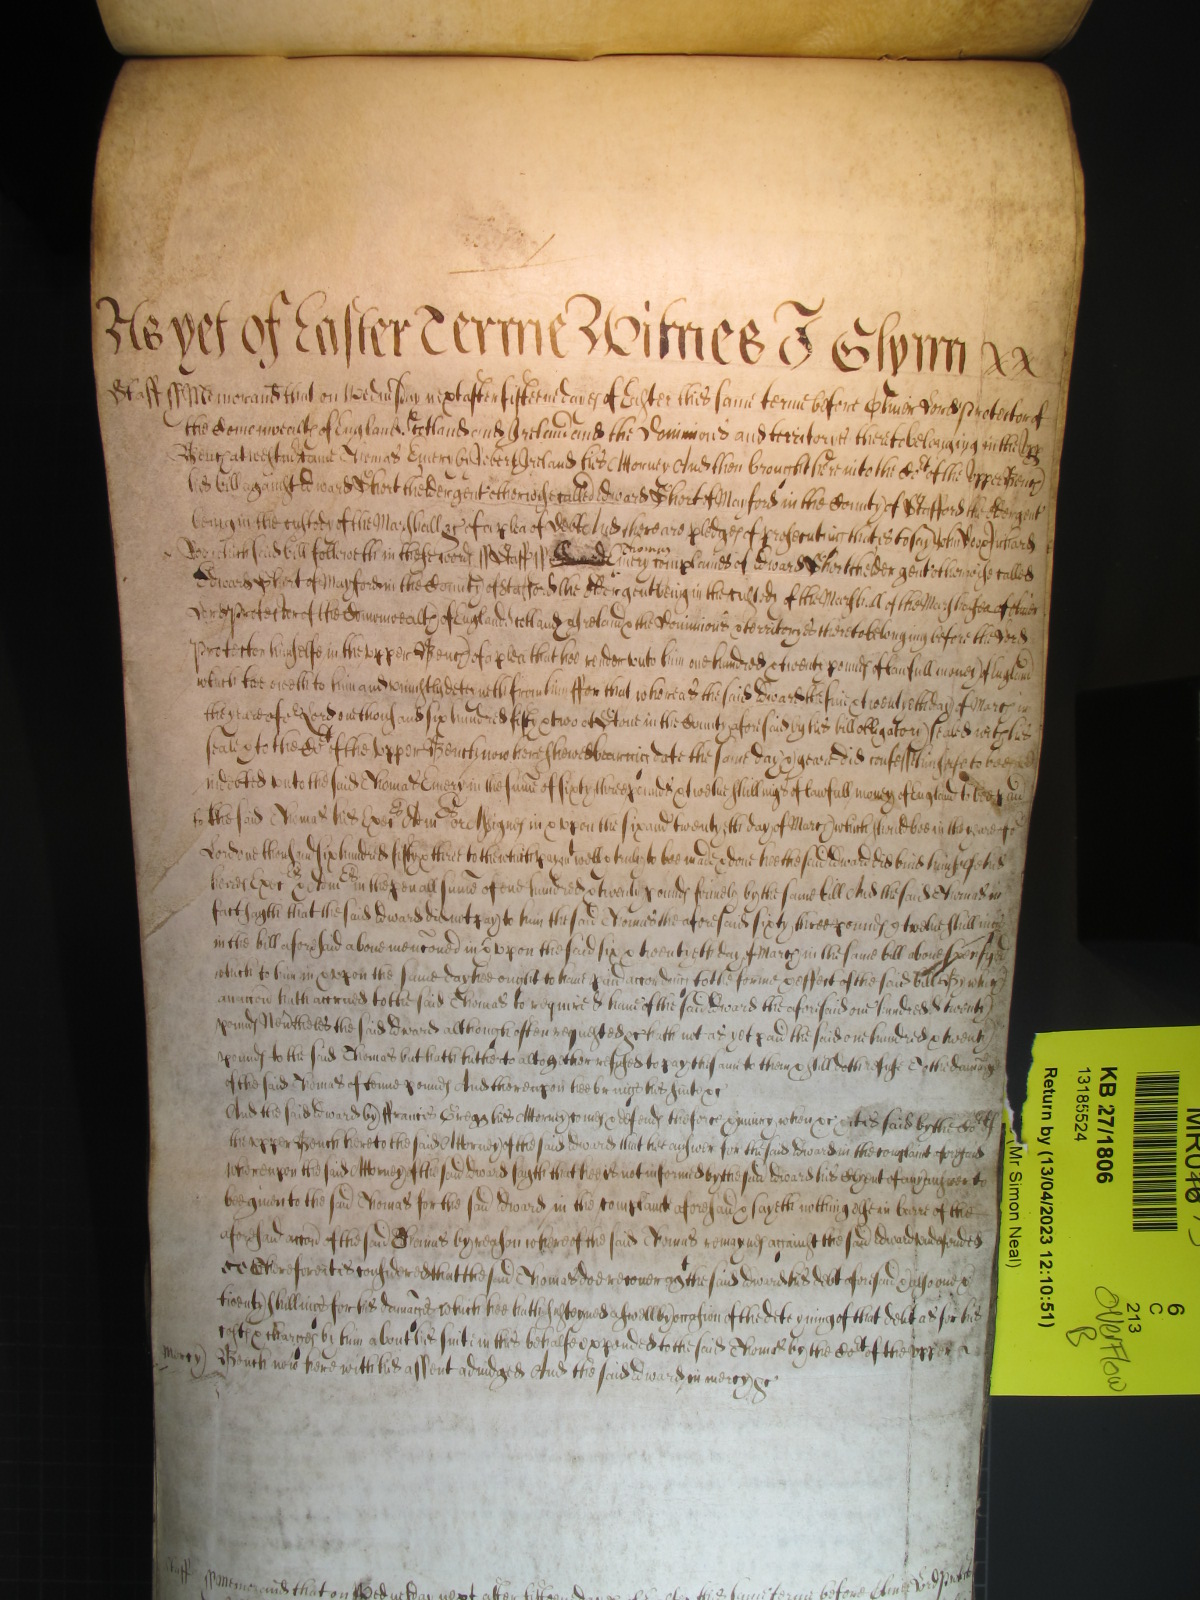 As yet of Easter Terme Witnes J Glynn xx
Staff ss Memorand that on Wednesday next after fifteene dayes of Easter this same terme before Oliver Lord Protector of
the Comonwealth of England Scotland and Ireland and the Dominions and territoryes thereto belonging in the Upp
Bench at Westm came Thomas Emery by Robert Ireland his Attorney And then brought here into the Cort of the Upper Bench
his bill against Edward Short the Elder gent otherwise called Edward Short of Mayford in the County of Stafford the Elder gent
being in the custody of the Marshall &c of a plea of Debt And there are pledges of prosecuting that is to say John Doe Richard
Roe which said bill followeth in these words ss Staff ss Thomas Emery complaines of Edward Short the elder gent otherwise called
Edward Short of Mayford in the County of Stafford the Elder gent being in the custody of the Marshall of the Marshalsea of Oliver
Lord Protector of the Comonwealth of England Scotland & Ireland & the Dominions & territoryes thereto belonging before the Lord
Protector himselfe in the upper Bench of a plea that hee render unto him one hundred & twenty pounds of lawfull money of England
which hee oweth to him and uniustly deteyneth from him ffor that whereas the said Edward the sixe & twentyeth day of March in
the yeare of or Lord one thousand six hundred fifty & two at Stone in the County aforesaid by his bill obligatory sealed with his
seale & to the Cort of the Upper Bench now here shewed beareing date the same day & yeare did confesse himselfe to bee
indebted unto the said Thomas Emery in the sume of sixty three pounds & twelve shillings of lawfull money of England to bee paid
to the said Thomas his Execrs Admrs or Assignes in & upon the six and twentyeth day of March which should bee in the yeare of or
Lord one thousand six hundred fifty & three to the which paymt well & truly to bee made & done hee the said Edward did bind himselfe his
heires Execrs & Admrs in the penall sume of one hundred & twenty pounds firmely by the same bill And the said Thomas in
fact sayth that the said Edward did not pay to him the said Thomas the aforesaid sixty three pounds & twelve shillings
in the bill aforesaid above menconed in & upon the said six & twentyeth day of March in the same bill above specifyed
which to him in & upon the same day hee ought to have paid according to the forme & effect of the said bill By which
an accon hath accrued to the said Thomas to require & have of the said Edward the aforesaid one hundred & twenty
pounds Neverthelesse the said Edward although often requested &c hath not as yet paid the said one hundred & twenty
pounds to the said Thomas but hath hitherto altogether refused to pay the same to him & still doth refuse To the damage
of the said Thomas of tenne pounds And thereupon hee brings his suite &c
And the said Edward by ffrancis Gregg his Attorney comes & defends the force & iniury when &c & it is said by the Cort of
the upper Bench here to the said Attorney of the said Edward that hee answer for the said Edward in the complaint aforesaid
whereupon the said Attorney of the said Edward sayth that hee is not informed by the said Edward his Clyent of any answer to
bee given to the said Thomas for the said Edward in the complaint aforesaid & sayeth nothing else in barre of the
aforesaid accon of the said Thomas by reason whereof the said Thomas remaynes against the said Edward undefended
&c Therefore it is considered that the said Thomas doe recover agt the said Edward his debt aforesaid & also one &
twenty shillings for his damages which hee hath susteyned aswell by occasion of the deteyning of that debt as for his
costs & charges by him about his suite in this behalfe expended to the said Thomas by the Cort of the upper
Bench now here with his assent adiudged And the said Edward in mercy &c
mercy
Staff ss Memorand that on Wednesday next after fifteene dayes of Easter this same terme before Oliver Lord Protector
KB 27/1806
13185524
Return by (13/04/2023 12:10:51)
(Mr Simon Neal)
6
C
213
Overflow
B